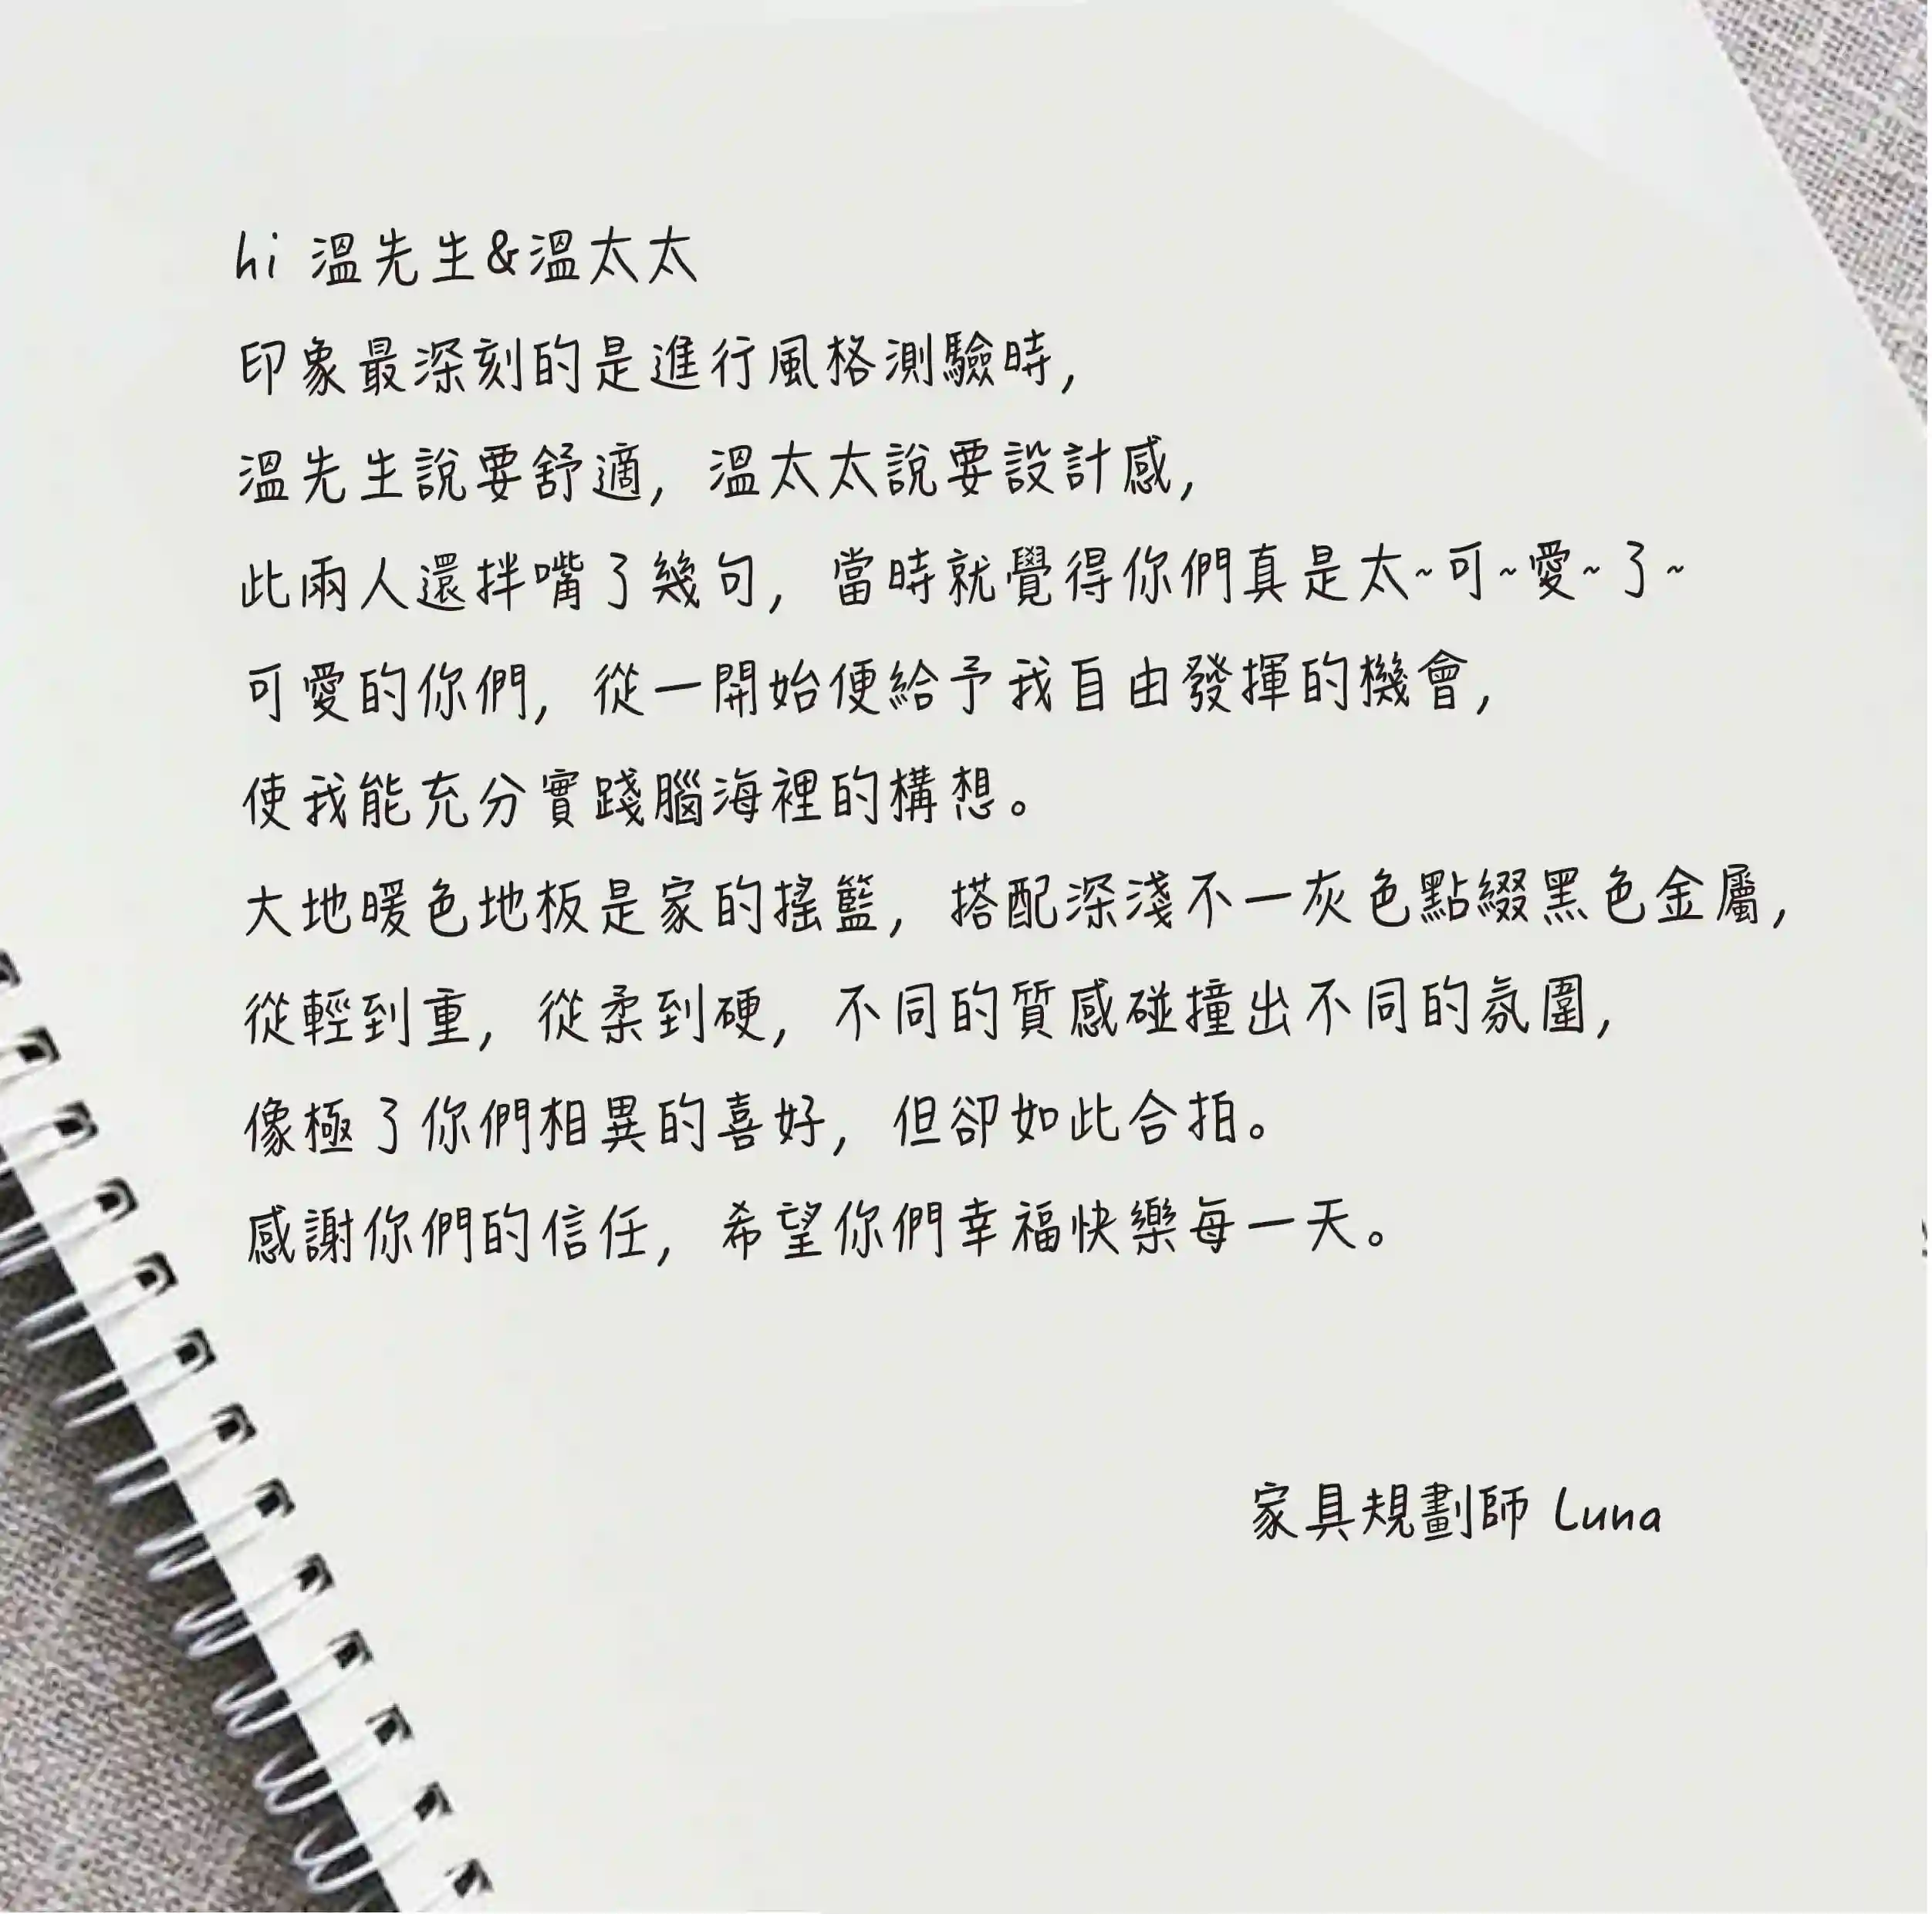 hi 溫先生&溫太太
印象最深刻的是進行風格測驗時,
溫先生說要舒適, 溫太太說要設計感,
此兩人還拌嘴了幾句, 當時就覺得你們真是太~可~愛~了~
可愛的你們, 從一開始便給予我自由發揮的機會,
使我能充分實踐腦海裡的構想。
大地暖色地板是家的搖籃, 搭配深淺不一灰色點綴黑色金屬,
從輕到重, 從柔到硬, 不同的質感碰撞出不同的氛圍,
像極了你們相異的喜好, 但卻如此合拍。
感謝你們的信任, 希望你們幸福快樂每一天。
家具規劃師 Luna